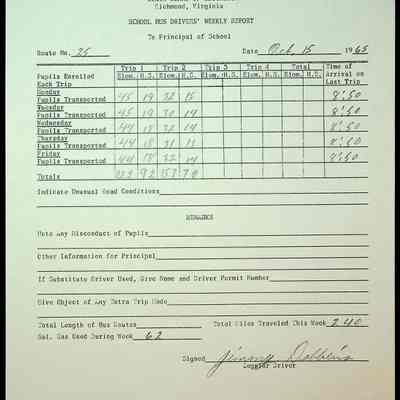 Richmond, Virginia
SCHOOL BUS DRIVERS' WEEKLY REPORT
To Principal of School
Route No. 25 Date Oct, 15 1965
Trip 1 Trip 2 Trip 3 Trip 4 Total Time of
Pupils Enrolled Elem. H.S. Elem. H.S. Elem. H.S. Elem. H.S. Elem. H.S. Arrival on
Each Trip Last Trip
Monday
Pupils Transported 45 19 32 15 8:50
Tuesday
Pupils Transported 45 19 30 14 8:50
Wednesday
Pupils Transported 44 18 32 14 8:50
Thursday
Pupils Transported 44 18 31 13 8:50
Friday
Pupils Transported 44 18 32 14 8:50
Totals 92 157 70
Indicate Unusual Road Conditions
REMARKS
Note Any Misconduct of Pupils
Other Information for Principal
If Substitute Driver Used, Give Name and Driver Permit Number
Give Object of Any Extra Trip Made
Total Length of Bus Routes Total Miles Traveled This Week 240
Gal. Gas Used During Week 62
Signed Jimmy
Regular Driver